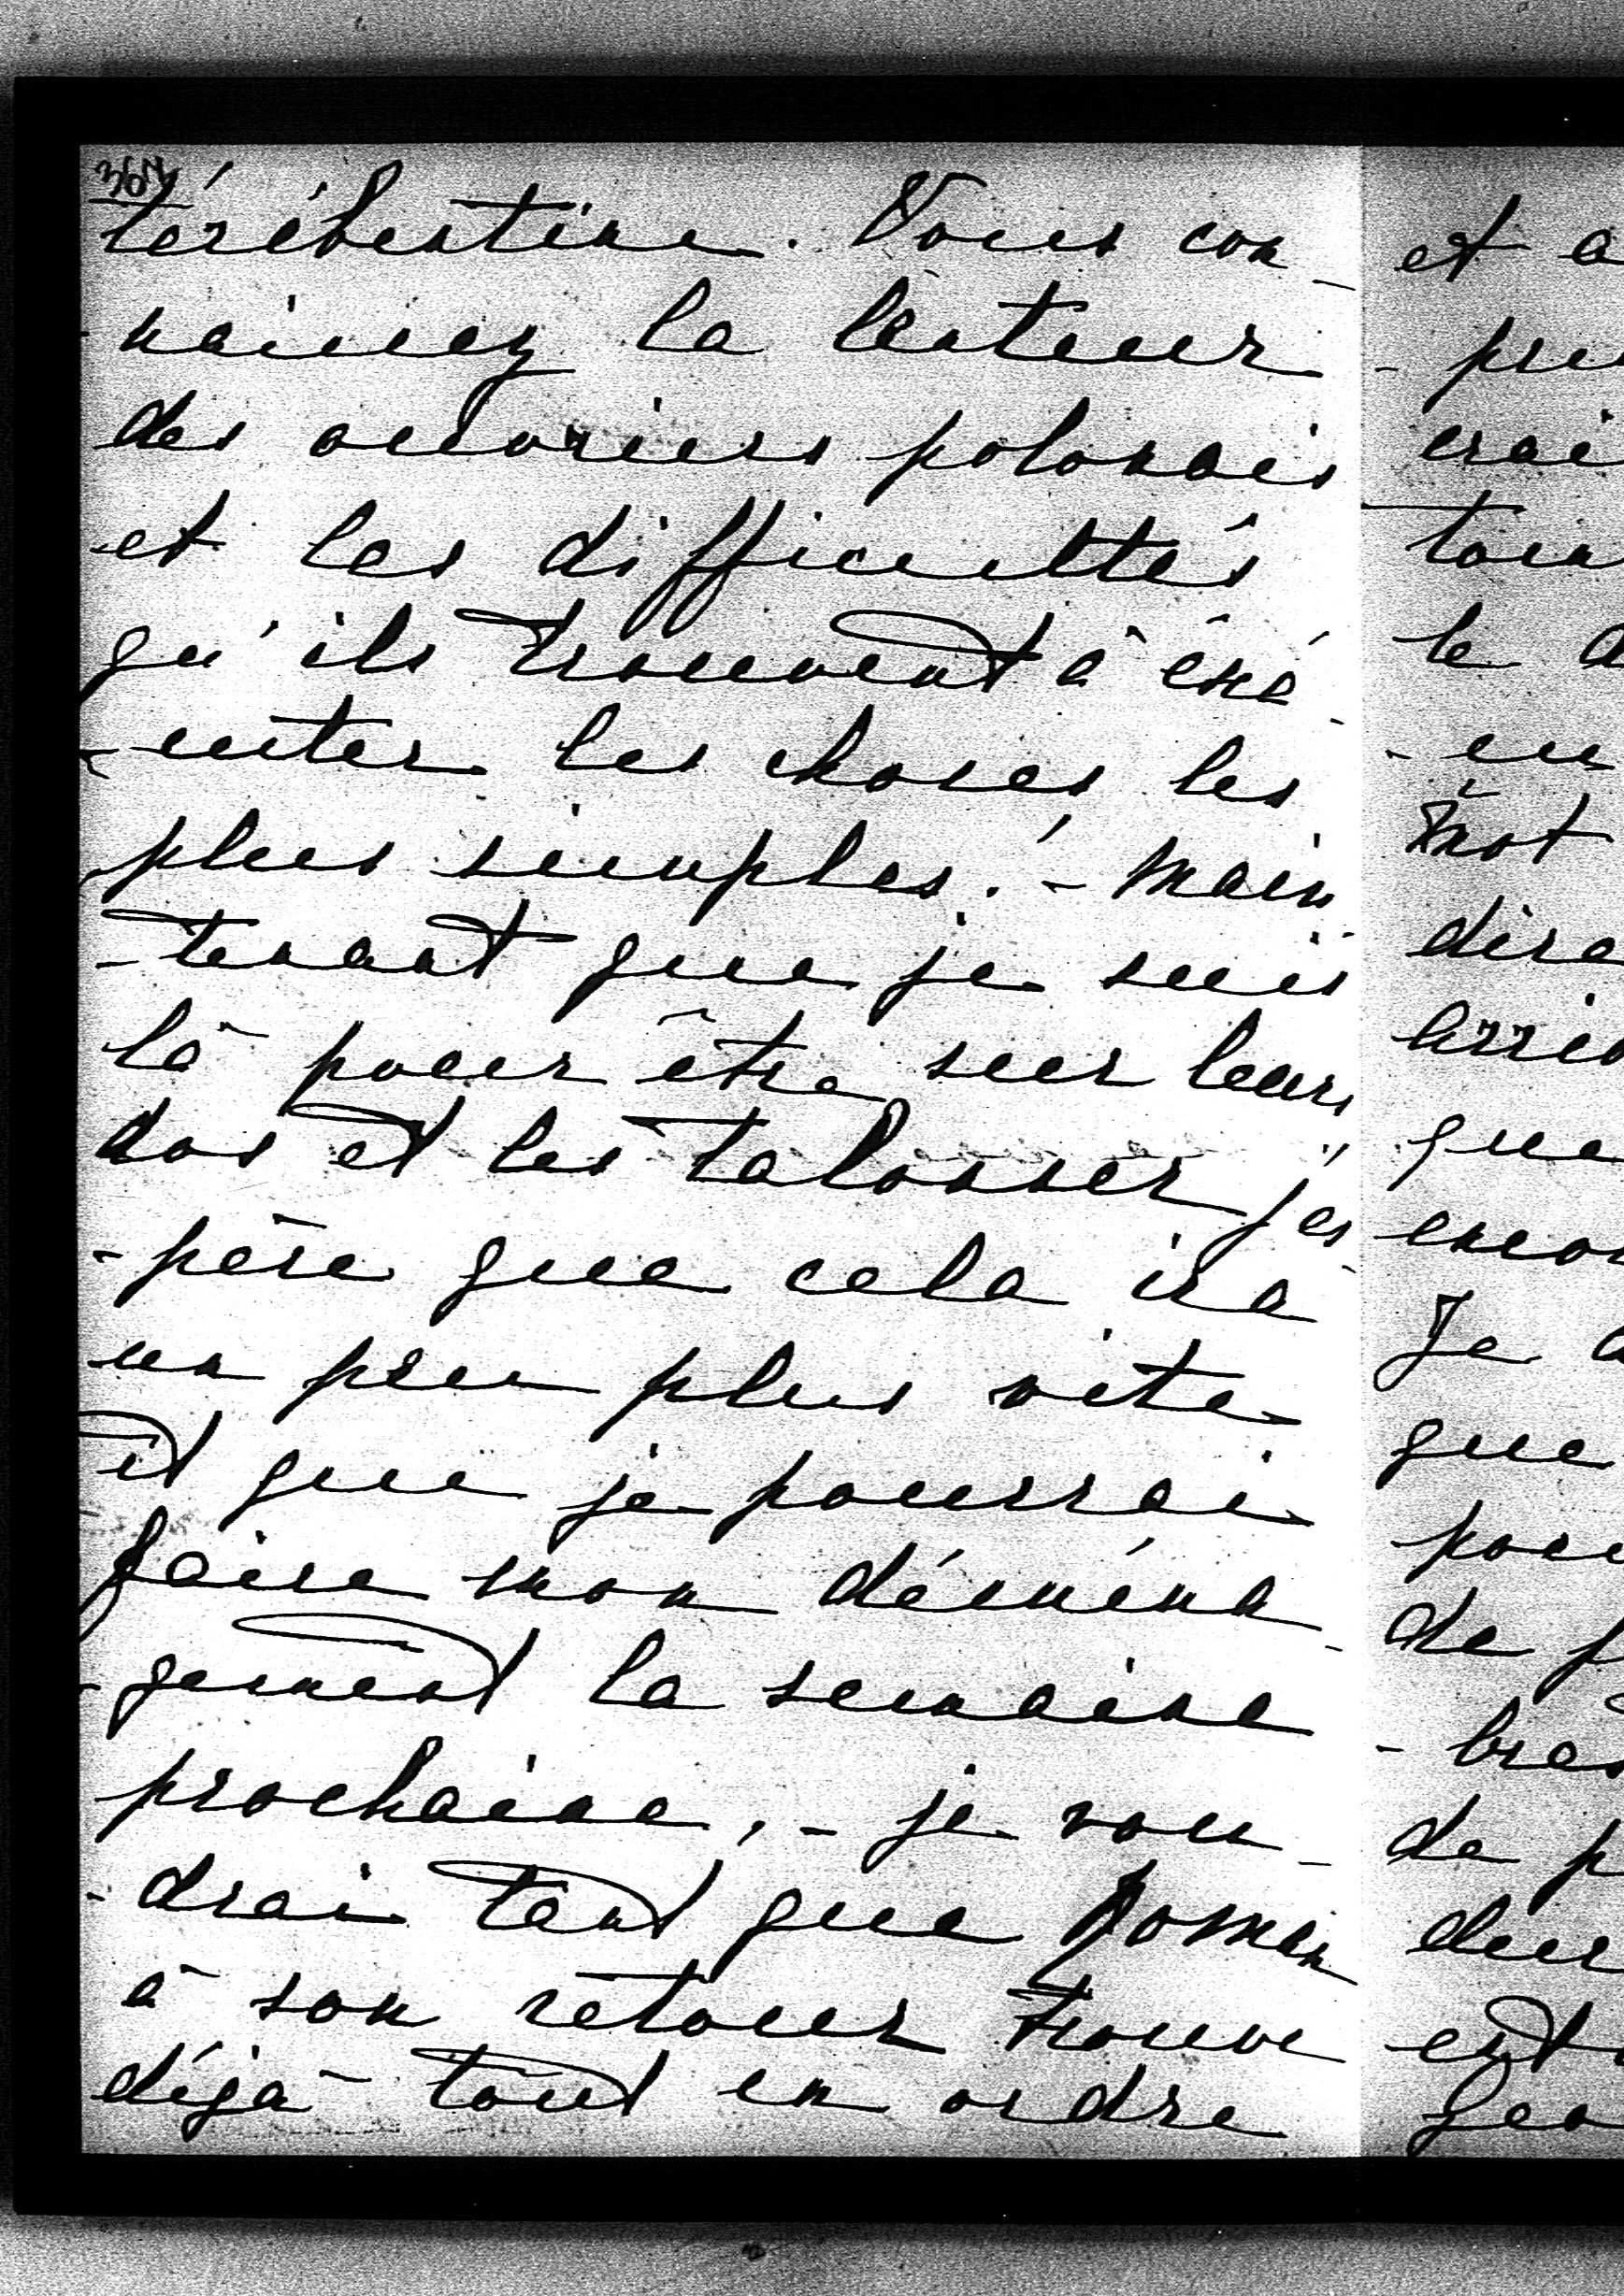 térébentine. Vous con-
naissez la lenteur
des ouvriers polonais
et les difficultés
qu'ils trouvent à éxé-
-cuter les choses les
plus simples! - Main-
-tenant que je suis
là pour être sur leurs
dos et les talonner j'es-
-père que cela ira
un peu plus vite
et que je pourrai
faire mon déména-
-gement la semaine
prochaine, - je vou-
-drai tant que Roman
à son retour trouve
déjà tout en ordre
et
le
mot
que
Je
que
de
de